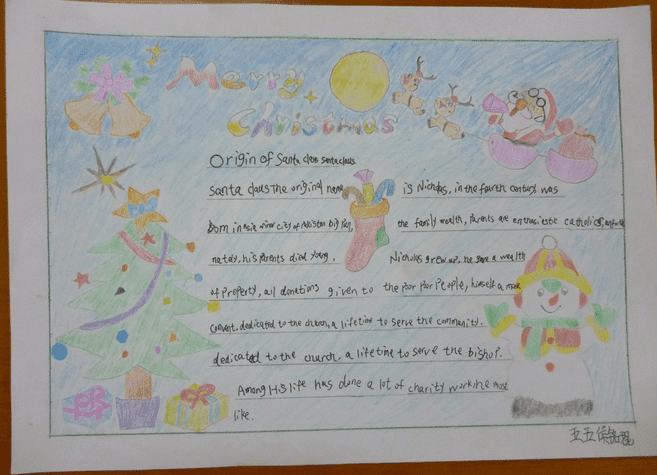 Merry
Christmas
Origin of Santa claus santa claus
santa claus The original name is Nicholas, in the fourth century was
Born in Asia minor city of the family wealth, parents are enthusiastic catholics,
nately, his parents died young. Nicholas grew up, he gave a wealth
of property, all donations given to the poor poor People, himself a
Convent, dedicated to the church, a lifetime to serve the community.
dedicated to the church, a lifetime to serve the bishop.
Among His life has done a lot of charity work, he most
like.
五五